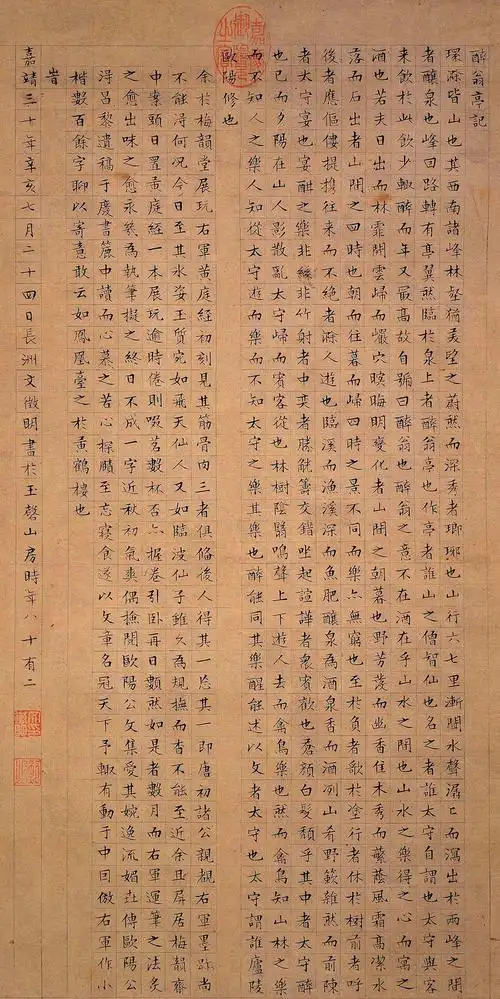 醉翁亭記
環滁皆山也其西南諸峰林壑猶美望之蔚然而深秀者瑯琊也山行六七里漸聞水聲潺〻而瀉出於兩峰之間
者釀泉也峰回路轉有亭翼然臨於泉上者醉翁亭也作亭者誰山之僧智仙也名之者誰太守自謂也太守與客
來飲於此飲少輒醉而年又最高故自號曰醉翁也醉翁之意不在酒在乎山水之間也山水之樂得之心而寓之
酒也若夫日出而林霏開雲歸而巖穴暝晦明變化者山間之朝暮也野芳發而幽香佳木秀而蘩蔭風霜高潔水
落而石出者山間之四時也朝而往暮而歸四時之景不同而樂亦無窮也至於負者歌於塗行者休於樹前者呼
後者應傴僂提攜往來而不絕者滁人遊也臨溪而漁溪深而魚肥釀泉為酒泉香而酒冽山肴野蔌雜然而前陳
者太守宴也宴酣之樂非絲非竹射者中奕者勝觥籌交錯坐起諠譁者衆賓歡也蒼顏白髮頹乎其中者太守醉
也已而夕陽在山人影散亂太守歸而賓客從也林樹陰翳鳴聲上下遊人去而禽鳥樂也然而禽鳥知山林之樂
而不知人之樂人知從太守遊而樂而不知太守之樂其樂也醉能同其樂醒能述以文者太守也太守謂誰廬陵
歐陽修也
余於梅韻堂展玩右軍黃庭經初刻見其筋骨肉三者俱備後人得其一忘其一即唐初諸公親覩右軍墨跡尚
不能淂何況今日至其水姿玉質宛如飛天仙人又如臨波仙子雖久為規撫而杳不能至近余且屏居梅韻齋
中案頭日置黃庭經一本展玩逾時倦則啜茗數杯否亦握卷引卧再日數然如是者數月而右軍運筆之法炙
之愈出味之愈永然為執筆擬之終日不成一字近秋初氣爽偶撿閱歐陽公文集受其婉逸流媚並傳歐陽公
淂昌黎遺稿于慶書簏中讀而心慕之苦心探賾至忘寢食遂以文章名冠天下予輒有動于中回倣右軍作小
楷數百餘字聊以寄意敢云如鳳凰臺之於黃鶴樓也
旹
嘉靖三十年辛亥七月二十四日長洲文徵明書於玉磬山房時年八十有二